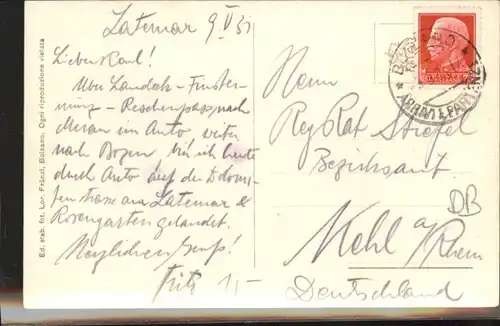 Latemar 9 VI 31
Lieber Karl!
Über Landeck - Finster-
münz - Reschenpass nach
Meran im Auto, weiter
nach Bozen bin ich heute
durch Auto auf der Dolomi-
tenstrasse am Latemar &
Rosengarten gelandet.
Herzlichen Gruß!
Fritz
Herrn
Reg Rat Stiefel
Bezirksamt.
Kehl a/Rhein
Deutschland
DB
ARRIVI E PARTENZE
Ed. stab. fot. Lor. Fränzl, Bolzano. Ogni riproduzione vietata